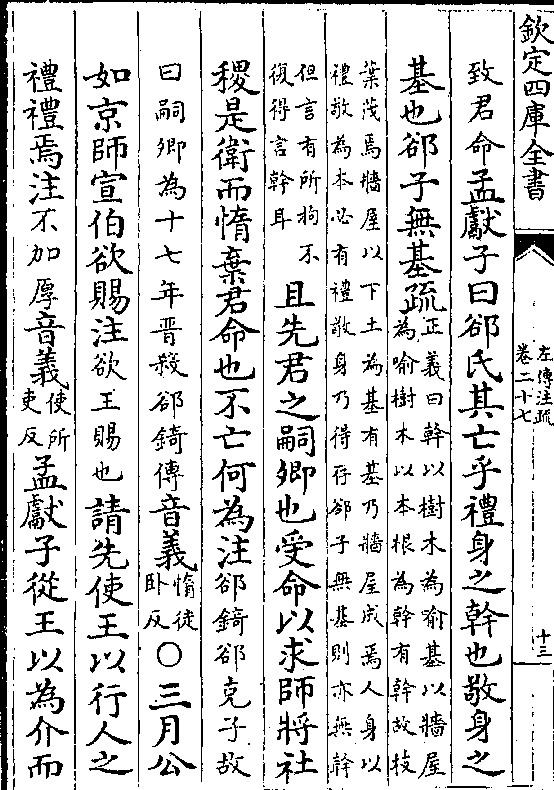 欽定四庫全書
左傳注疏
卷二十七
十三
致君命孟獻子曰郤氏其亡乎禮身之幹也敬身之
基也郤子無基疏正義曰幹以樹木為喻基以牆屋
為喻樹木以本根為幹有幹故枝
葉茂焉牆屋以下土為基有基乃牆屋成焉人身以
禮敬為本必有禮敬身乃得存郤子無基則亦無幹
但言有所拘不
復得言幹耳
且先君之嗣卿也受命以求師將社
稷是衛而惰棄君命也不亡何為注郤錡郤克子故
曰嗣卿為十七年晋殺郤錡傳音義惰徒
卧反
○三月公
如京師宣伯欲賜注欲王賜也請先使王以行人之
禮禮焉注不加厚音義使所
吏反
孟獻子從王以為介而